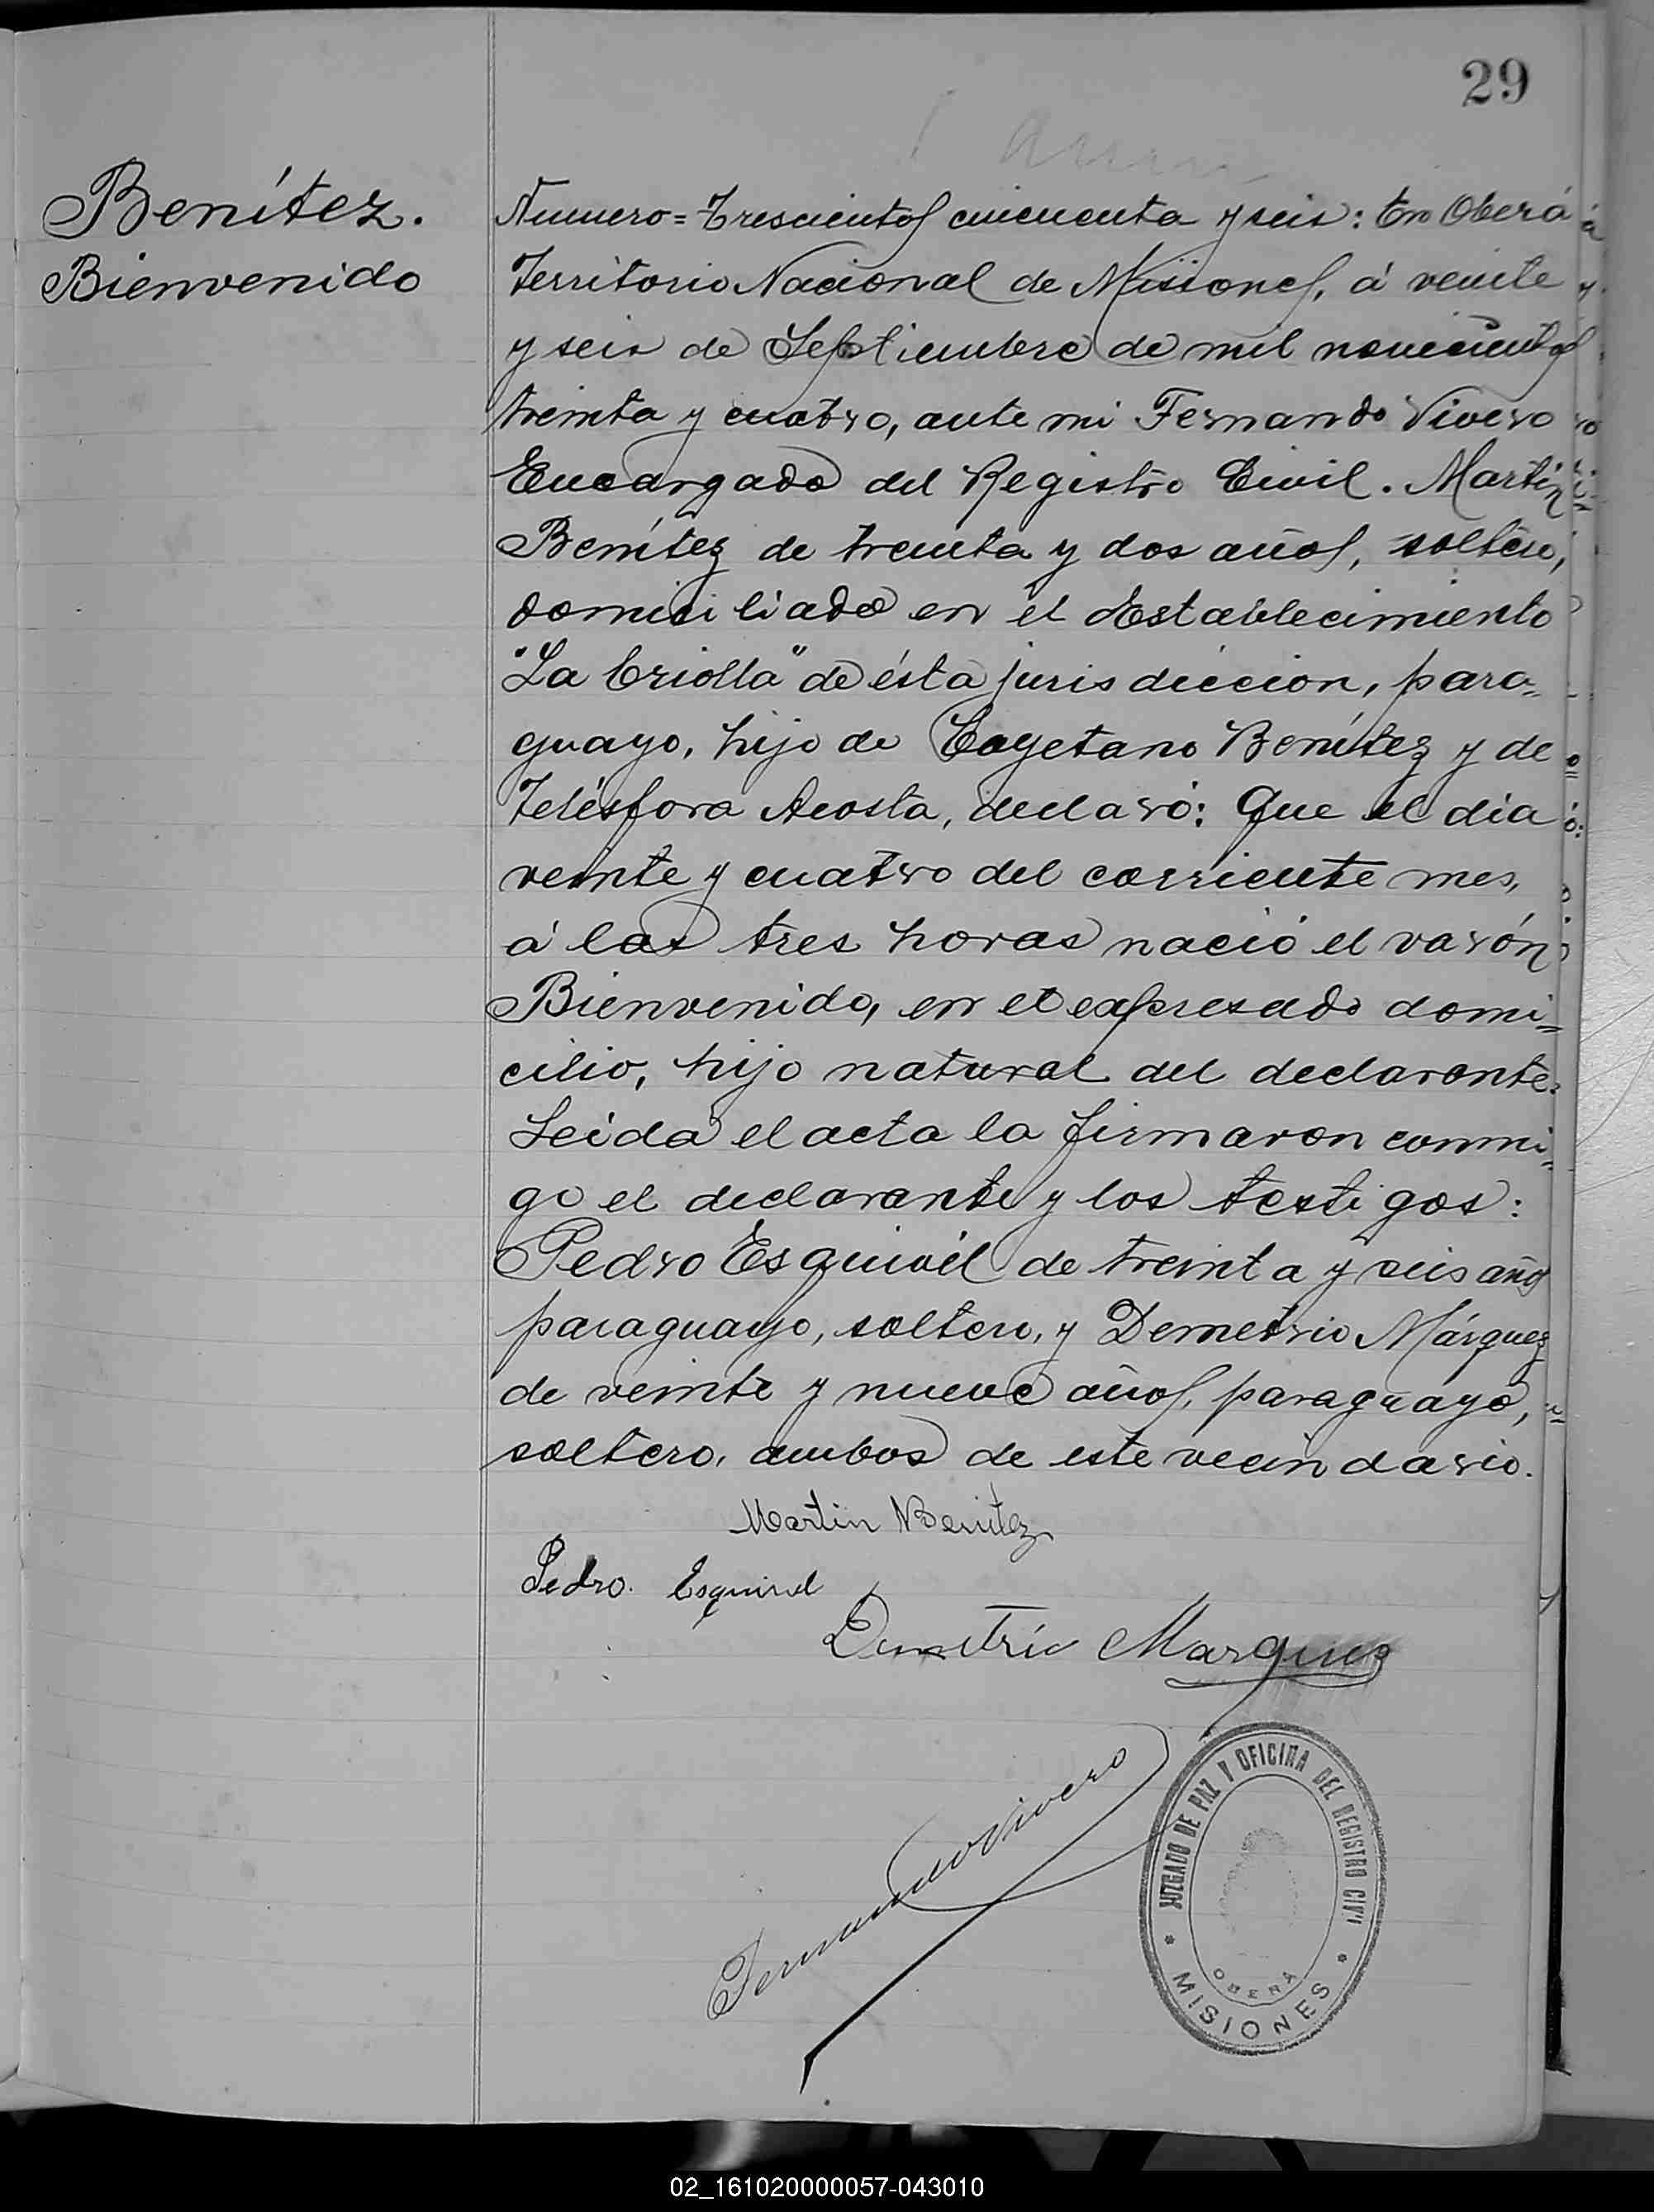 29
Benítez.
Bienvenido
Numero = Trescientos cincuenta y seis: En Oberá
Territorio Nacional de Misiones, á veinte
y seis de Septiembre de mil novecientos
treinta y cuatro, ante mi Fernando Vivero
Encargado del Registro Civil. Martín
Benítez de treinta y dos años, soltero,
domiciliado en el Establecimiento
"La Criolla" de ésta jurisdiccion, para=
guayo, hijo de Cayetano Benítez y de
Telésfora Acosta, declaró: Que el dia
veinte y cuatro del corriente mes,
á las tres horas nació el varón
Bienvenido, en el expresado domi=
cilio, hijo natural del declarante.
Leida el acta la firmaron conmi=
go el declarante y los testigos:
Pedro Esquivél de treinta y seis años
paraguayo, soltero, y Demetrio Márquez
de veinte y nueve años, paraguayo,
soltero, ambos de este vecindario.
Martin Benitez
Pedro. Esquivel
Demetrio Marquez
Fernando Vivero
JUZGADO DE PAZ Y OFICINA DEL REGISTRO CIVIL
OBERÁ
* MISIONES *
02_161020000057-043010